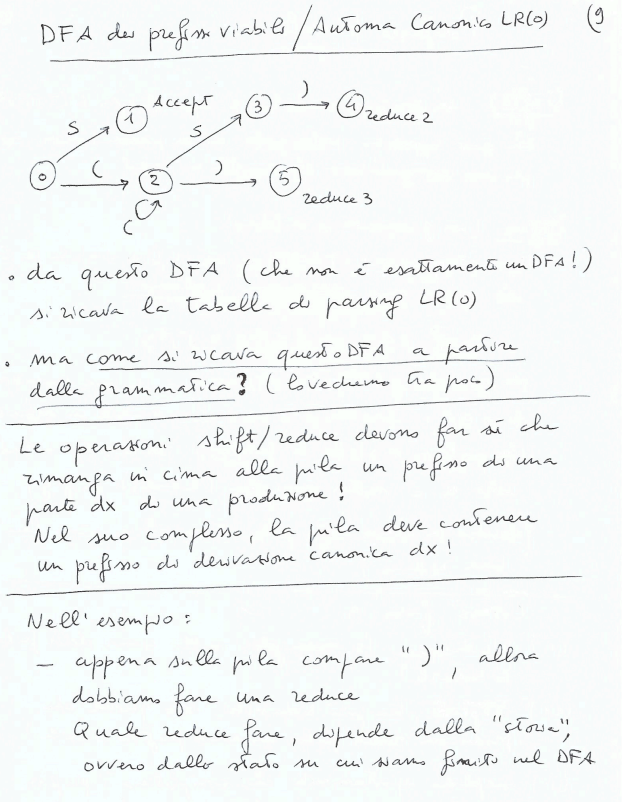 DFA dei prefissi viabili / Automa Canonico LR(0) (9
Accept
S 1 S 3 ) 4 reduce 2
0 ( 2 ) 5 reduce 3
(
• da questo DFA (che non è esattamente un DFA!)
si ricava la tabella di parsing LR(0)
• ma come si ricava questo DFA a partire
dalla grammatica? (lo vedremo tra poco)
Le operazioni shift/reduce devono far sì che
rimanga in cima alla pila un prefisso di una
parte dx di una produzione!
Nel suo complesso, la pila deve contenere
un prefisso di derivazione canonica dx!
Nell'esempio:
– appena sulla pila compare ")", allora
dobbiamo fare una reduce
Quale reduce fare, dipende dalla "storia",
ovvero dallo stato su cui siamo finiti nel DFA